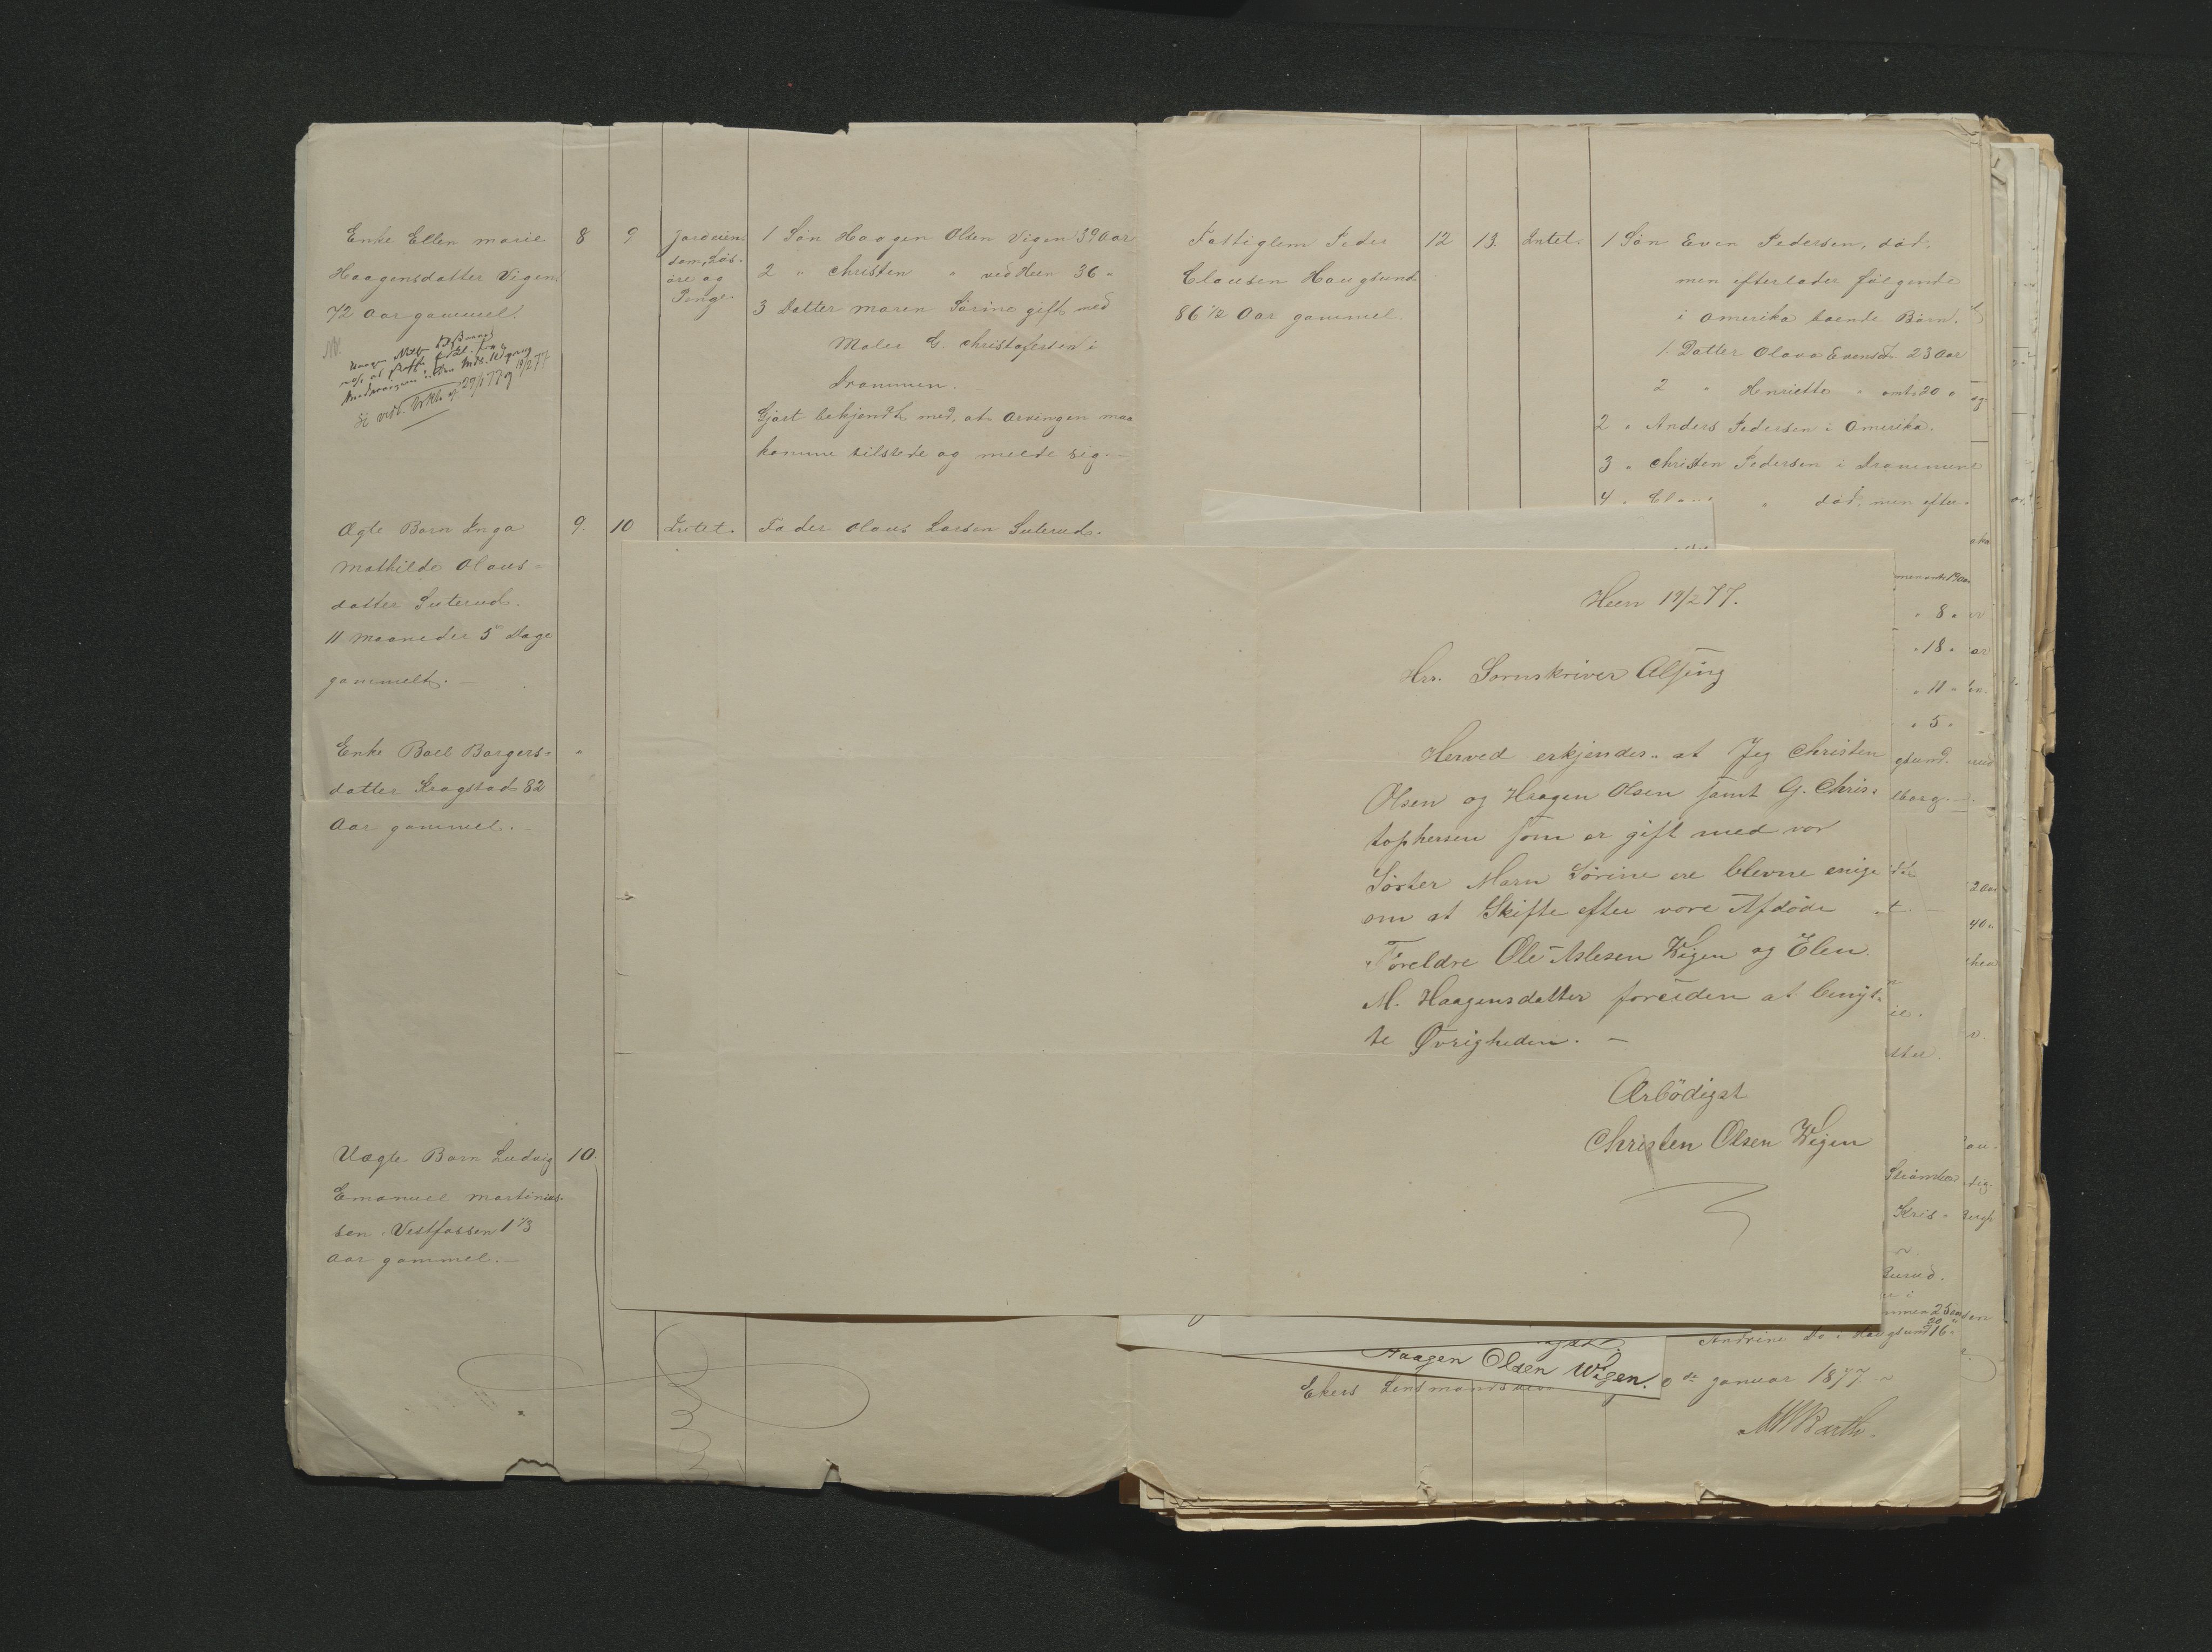 Enke Ellen Marie
Haagensdatter Vigen
72 Aar gammel.
8
9
Jordeien-
dom, Løs-
øre og
Penge.
1 Søn Haagen Olsen Vigen 39 Aar
2 " Christen " ved Heen 36 "
3 Datter Maren Sørine gift med
Maler G. Christofersen i
Drammen.
Gjort bekjendt med, at Arvingen maa
komme tilstede og melde sig. —
Ægte Barn Inga
Mathilde Olaus-
datter Suterud.
11 Maaneder 5 Dage
gammelt. —
9.
10
Intet.
Fader Olaus Larsen Suterud.
Enke Boel Borgers-
datter Krogstad 82
Aar gammel. —
"
Uægte Barn Ludvig
Emanuel Martinius-
sen Vestfossen 1 1/3
Aar gammel. —
10.
Fattiglem Peder
Clausen Haugsund
86 1/2 Aar gammel.
12
13.
Intet.
1 Søn Even Pedersen, død,
men efterlader følgende
i Amerika boende Børn.
1. Datter Olava Evensd. 23 Aar
2 " Henriette " omt. 20 "
2 " Anders Pedersen i Amerika.
3 " Christen Pedersen i Drammen
4 " " død, men efter-
Heen 19/2 77.
Hrr. Sornskriver Alsing
Herved erkjendes at Jeg Christen
Olsen og Haagen Olsen samt G. Chris-
tophersen som er gift med vor
Søster Marn Sørine ere blevne enige
om at Skifte efter vore Afdøde
Foreldre Ole Aslesen Wigen og Elen
M. Haagensdatter foreiden at benyt-
te Øvrigheden. —
Ærbödigst
Christen Olsen Wigen
" 8 "
" 18 "
" 11 "
" 5 "
Andrine do i Haugsund 16 "
Haagen Olsen Wigen.
Ekers Lensmands
de Januar 1877
Barth.